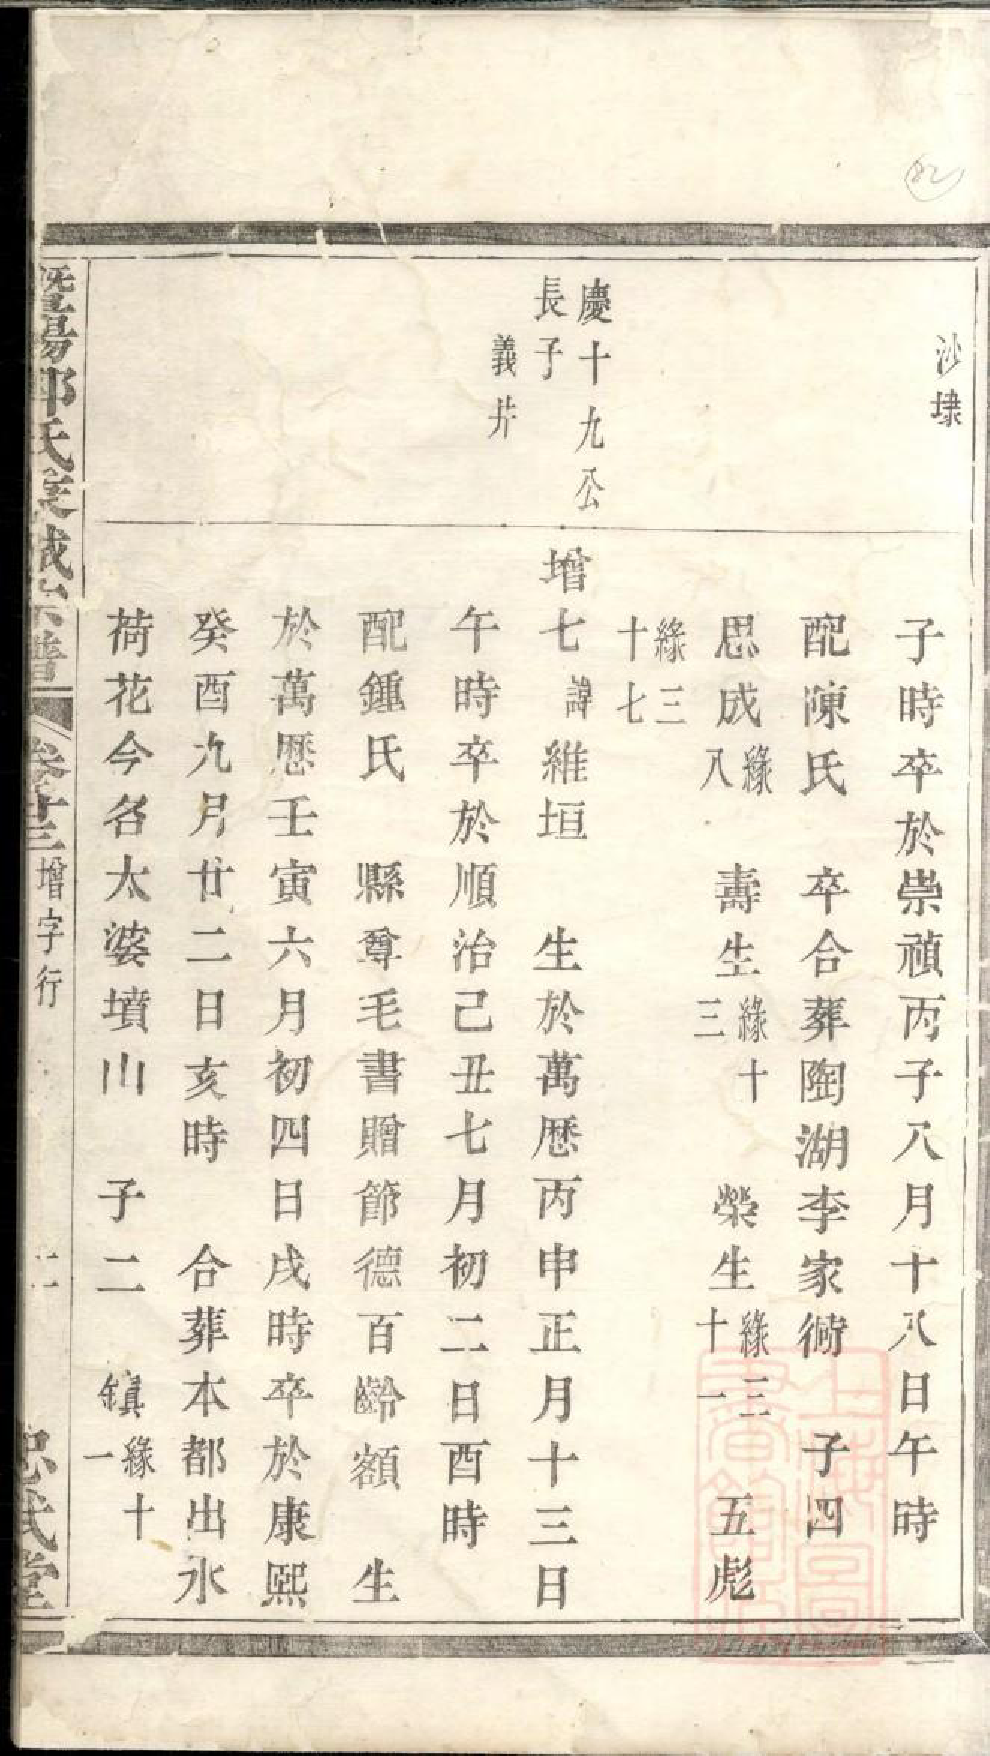 沙埭
子時卒於崇禎丙子八月十八日午時
配陳氏 卒合葬陶湖李家衕 子四
思成緣八 壽生緣十三 榮生緣三十一 五彪
緣三十七
慶十九公
長子
義爿
增七諱維垣 生於萬歷丙申正月十三日
午時卒於順治己丑七月初二日酉時
配鍾氏 縣尊毛書贈節德百齡額 生
於萬歷壬寅六月初四日戌時卒於康熙
癸酉九月廿二日亥時 合葬本都出水
荷花今名太婆墳山 子二 鎮緣十一
暨陽邢氏宗譜
卷廿三 增字行
二
忠武堂